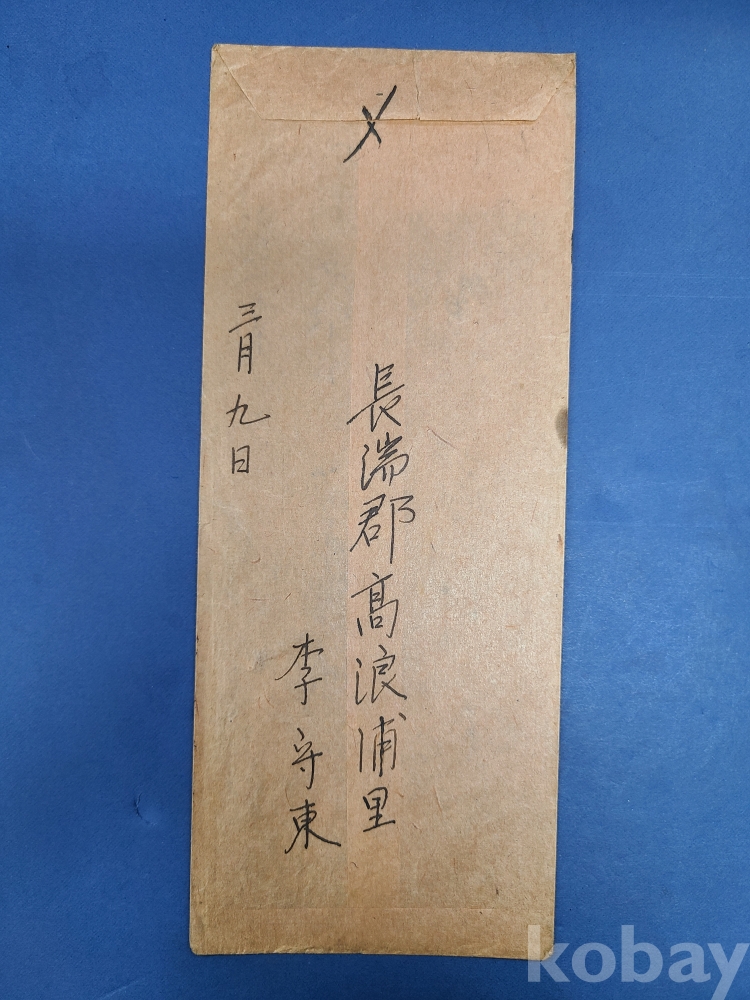 〆
長湍郡高浪浦里
李守東
三月九日
kobay